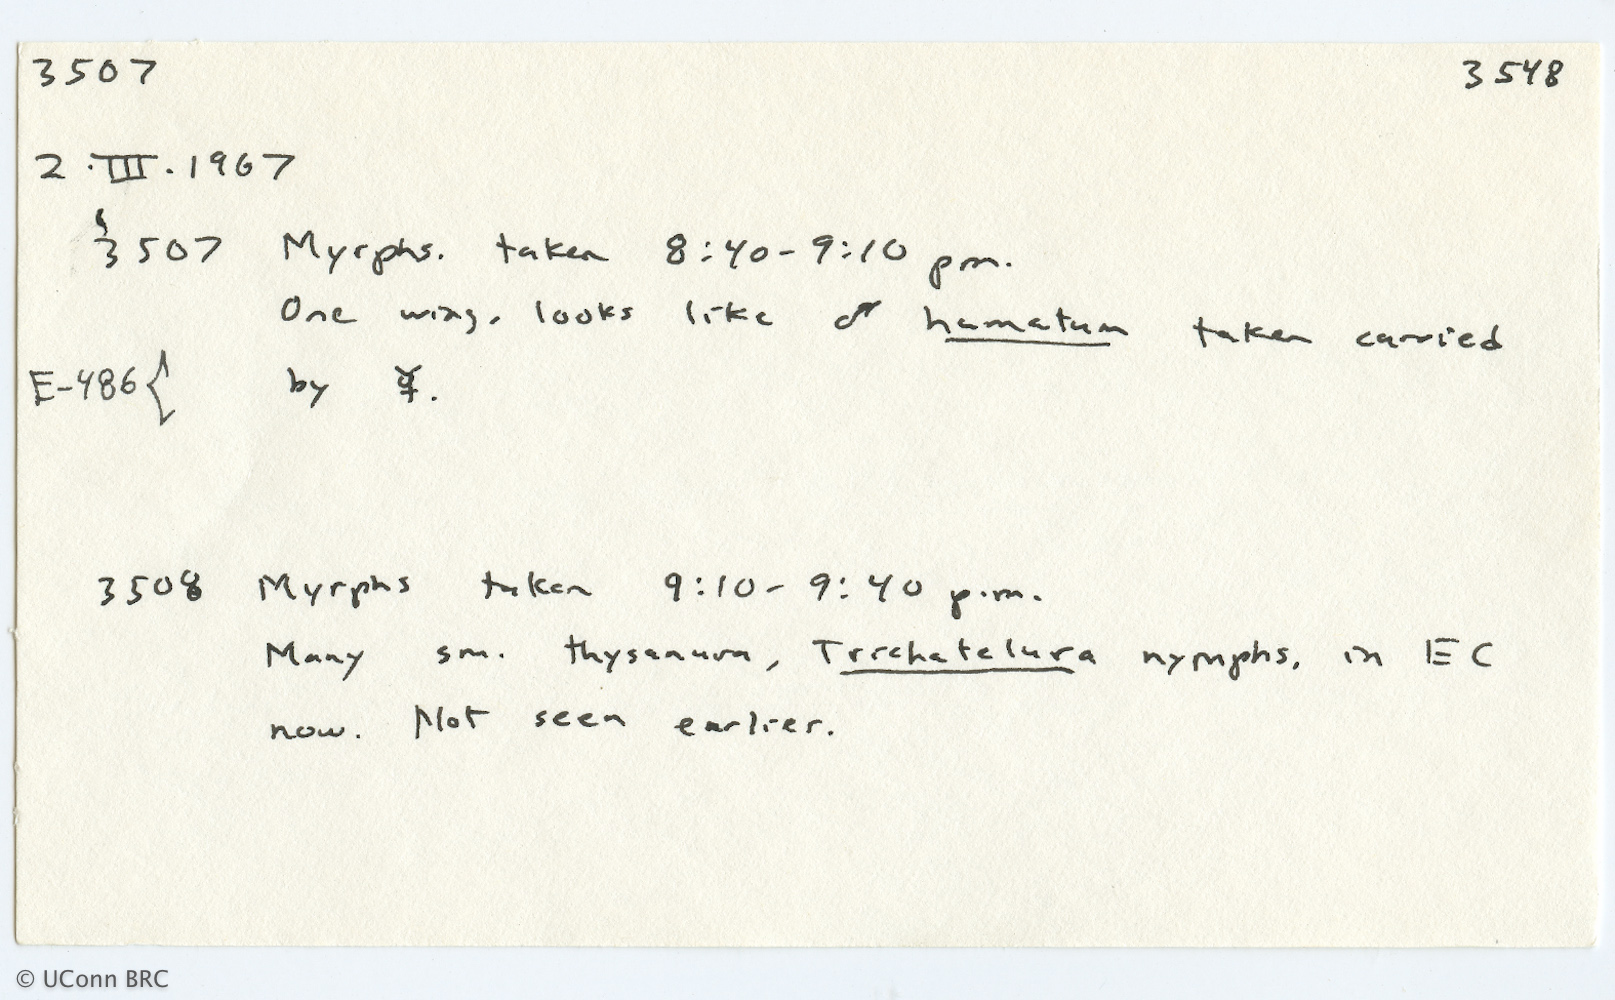 3507 3548
2.III.1967
3507 Myrphs. taken 8:40-9:10 pm.
One wing, looks like ♂ hamatum taken carried
E-486{ by ☿.
3508 Myrphs taken 9:10-9:40 p.m.
Many sm. thysanura, Trichatelura nymphs, in EC
now. Not seen earlier.
© UConn BRC